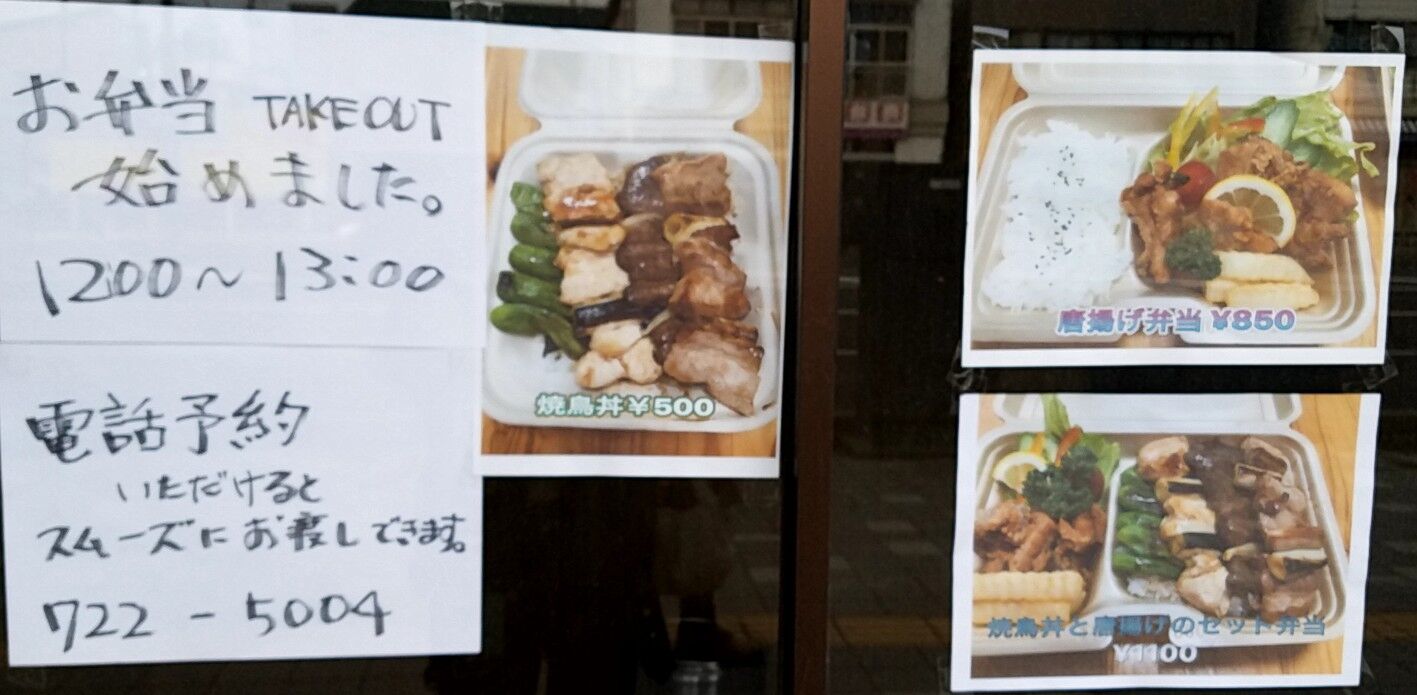 お弁当 TAKEOUT
始めました。
1200〜13:00
電話予約
いただけると
スムーズにお渡しできます。
722-5004
焼鳥丼¥500
唐揚げ弁当 ¥850
焼鳥丼と唐揚げのセット弁当
¥1100